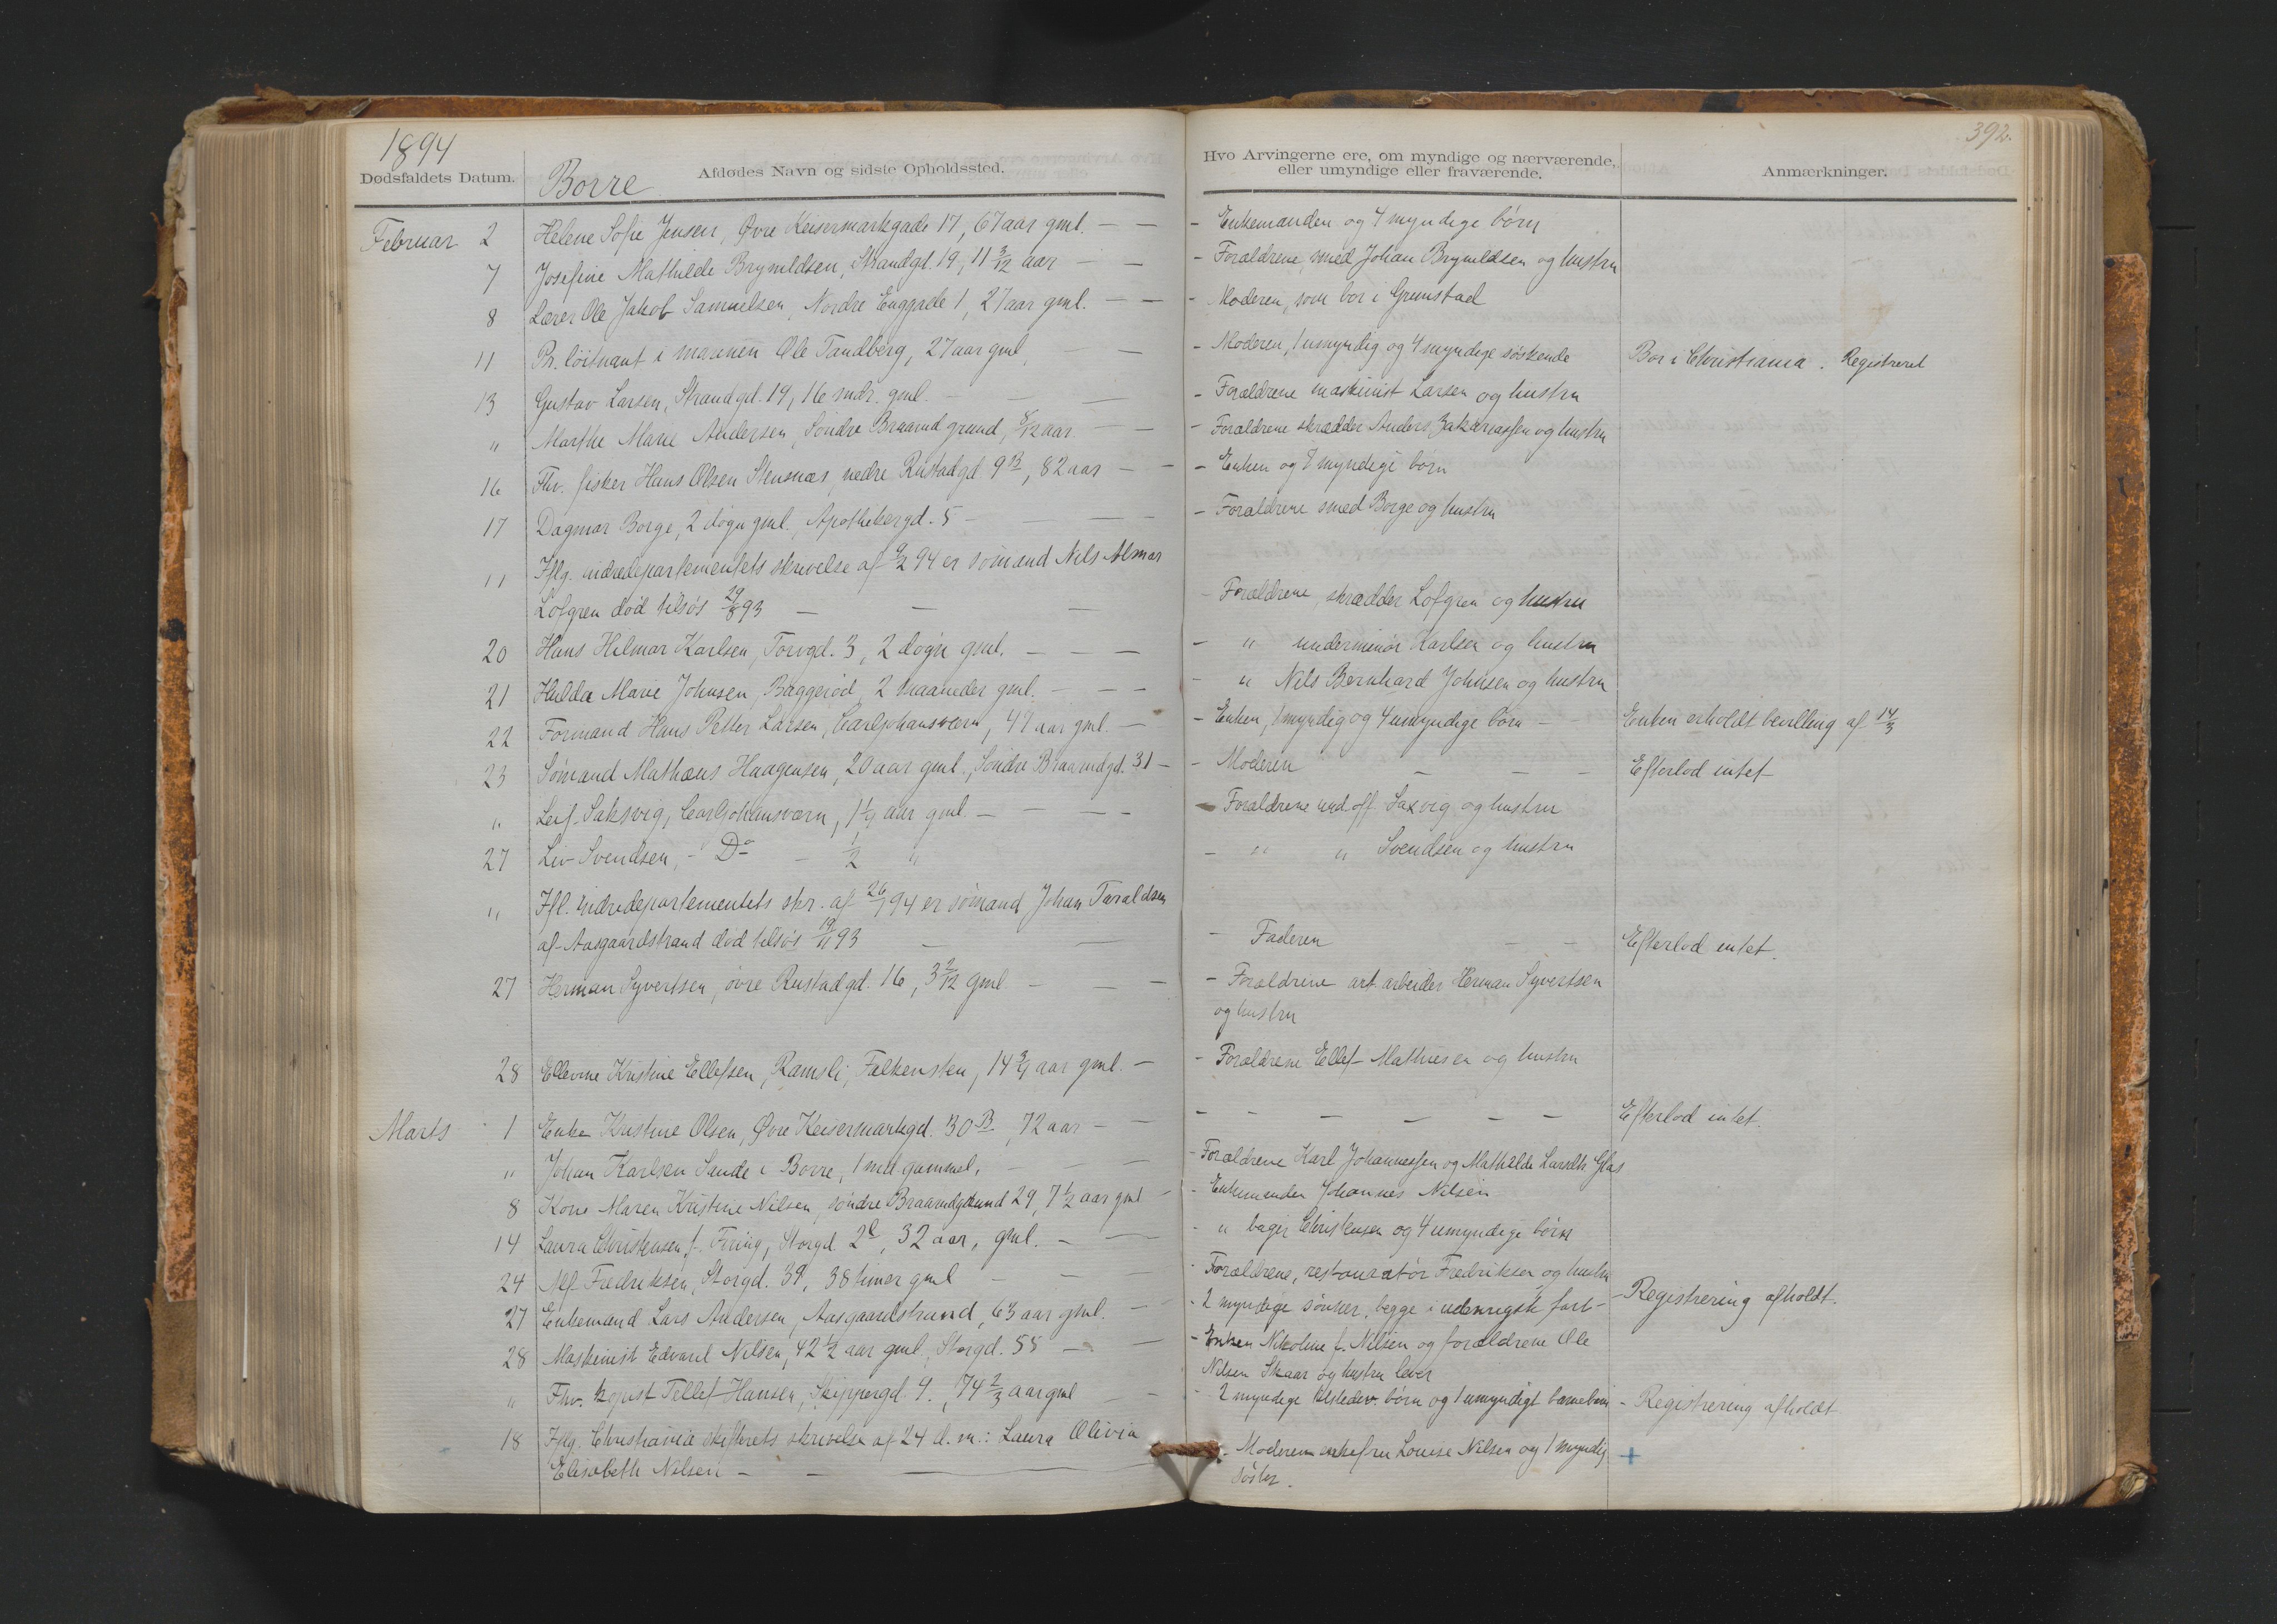 1894
392.
Dødsfaldets Datum.
Borre
Afdødes Navn og sidste Opholdssted.
Hvo Arvingerne ere, om myndige og nærværende, eller umyndige eller fraværende.
Anmærkninger.
Februar 2 Helene Sofie Jensen, Øvre Keisermarkgade 17, 67 aar gml. — — - Enkemanden og 4 myndige börn
7 Josefine Mathilde Brynildsen, Strandgd. 19, 11 3/12 aar — — - Forældrene, smed Johan Brynildsen og hustru
8 Lærer Ole Jakob Samuelsen, Nordre Enggade 1, 27 aar gml. — — - Moderen, som bor i Grimstad
11 Pr. löitnant i marinen Ole Tandberg, 27 aar gml. — — - Moderen, 1 umyndig og 4 myndige söskende Bor i Christiania. Registreret
13 Gustav Larsen, Strandgd. 19, 16 mdr. gml. — — — - Forældrene maskinist Larsen og hustru
" Marthe Marie Andersen, Söndre Braarud grund, 8/12 aar — — - Forældrene skrædder Anders Zakariassen og hustru
16 Fhv. fisker Hans Olsen Stensnæs, nedre Rustadgd 9B, 82 aar — — - Enken og 8 myndige börn
17 Dagmar Borge, 2 dögn gml., Apothekergd. 5 — — — - Forældrene smed Borge og hustru
" Iflg. indredepartementets skrivelse af 9/2 94 er sömand Nils Almar
Löfgren död tilsös 29/8 93 — — — - Forældrene skrædder Löfgren og hustru
20 Hans Hilmar Karlsen, Torvgd. 3, 2 dögn gml. — — — - " underminör Karlsen og hustru
21 Hulda Marie Johnsen, Baggeröd, 2 maaneder gml. — — — - " Nils Bernhard Johnsen og hustru
22 Formand Hans Petter Larsen, Carljohansværn, 47 aar gml. — - Enken, 1 myndig og 4 umyndige börn — Enken erholdt bevilling af 14/3
23 Sömand Mathæus Haagensen, 20 aar gml., Söndre Braarudgd. 31 — - Moderen — — — Efterlod intet
" Leif Saksvig, Carljohansværn, 1 1/4 aar gml. — — — - Forældrene und.off. Saxvig og hustru
27 Liv Svendsen, - Do - 1/2 " - " " Svendsen og hustru
" Ifl. indredepartementets skr. af 26/1 94 er sömand Johan Taraldsen
af Aasgaardstrand död tilsös 19/11 93 — — - Faderen — — Efterlod intet.
27 Herman Syvertsen, övre Rustadgd. 16, 3 2/12 gml. — — — - Forældrene art. arbeider Herman Syvertsen
og hustru
28 Ellevine Kristine Ellefsen, Ramsli, Falkensten, 14 3/4 aar gml. — - Forældrene Ellef Mathiesen og hustru
Marts 1 Enke Kristine Olsen, Øvre Keisermarkgd. 30 B, 72 aar — — - — — — — — Efterlod intet.
" Johan Karlsen Sande i Borre, 1 md. gammel. — — — - Forældrene Karl Johannessen og Mathilde Larsdtr
8 Kone Maren Kristine Nilsen, söndre Braarudgrund 29, 7 1/2 aar gml — - Enkemanden Johannes Nilsen
14 Laura Christensen, f. Firing, Storgd. 2C, 32 aar, gml. — — - " bager Christensen og 4 umyndige börn
24 Alf Fredriksen, Storgd. 39, 38 timer gml — — — - Forældrene, restauratör Fredriksen og hustru
27 Enkemand Lars Andersen, Aasgaardstrand, 63 aar gml. — - 2 myndige sönner, begge i udenrigsk fart — Registrering afholdt.
28 Maskinist Edvard Nilsen, 42 1/2 aar gml., Storgd. 55 — — - Enken Nikoline f. Nilsen og forældrene Ole
Nilsen Skaar og hustru lever
" Fhv. Tellef Hansen, Skippergd. 9, 74 2/3 aar gml — — - 2 myndige tilstedev. börn og 1 umyndigt barnebarn - Registrering afholdt
18 Iflg. Christiania skifterets skrivelse af 24 d. m.: Laura Olivia
Elisabeth Nilsen — — — - Moderen enkefru Louise Nilsen og 1 myndig +
söster.